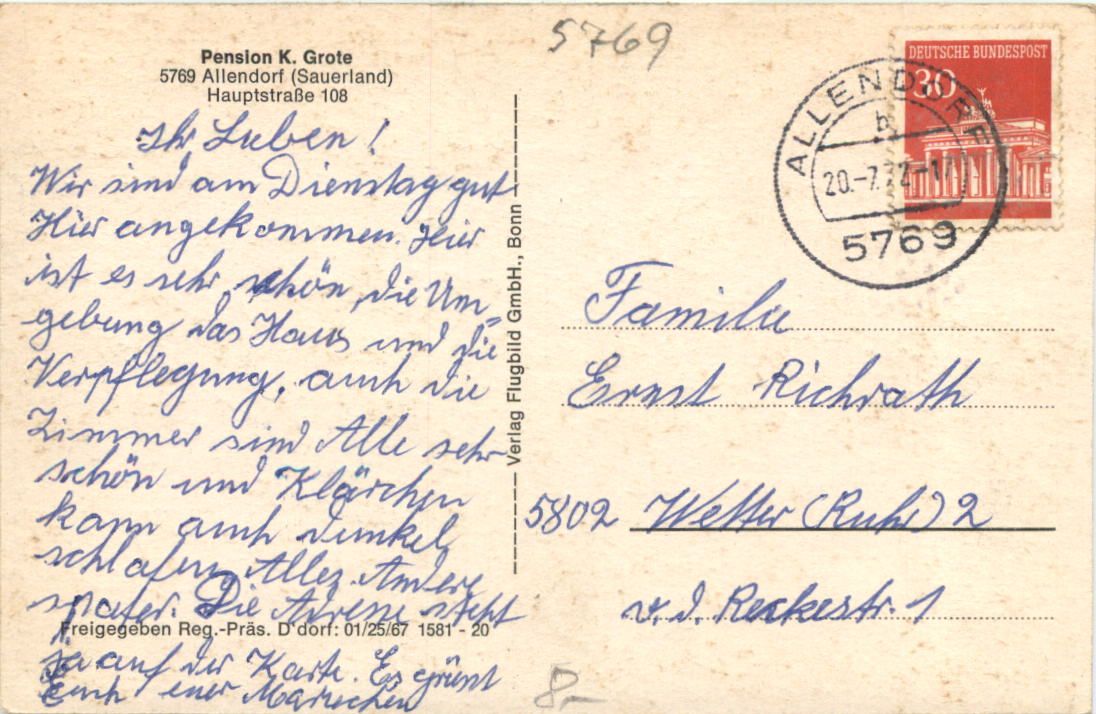 5769
Pension K. Grote
5769 Allendorf (Sauerland)
Hauptstraße 108
DEUTSCHE BUNDESPOST
30
ALLENDORF
b
20.-7.72-17
5769
Ihr Lieben!
Wir sind am Dienstag gut
Hier angekommen. Hier
ist es sehr schön, die Um-
gebung das Haus und die
Verpflegung, auch die
Zimmer sind Alle sehr
schön und Klärchen
kann auch dunkel
schlafen. Alles Andere
später. Die Adresse steht
ja auf der Karte. Es grüsst
Euch euer Mariechen
Freigegeben Reg.-Präs. D'dorf: 01/25/67 1581 - 20
Verlag Flugbild GmbH., Bonn
Familie
Ernst Richrath
5802 Wetter (Ruhr) 2
v. d. Reckestr. 1
8,-